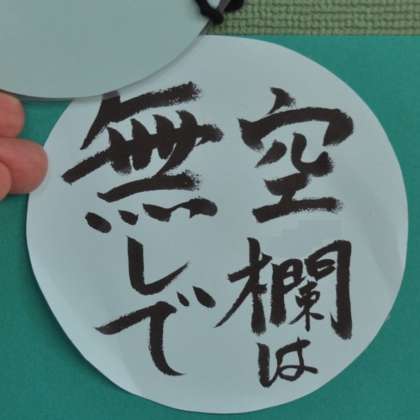 空欄は
無しで